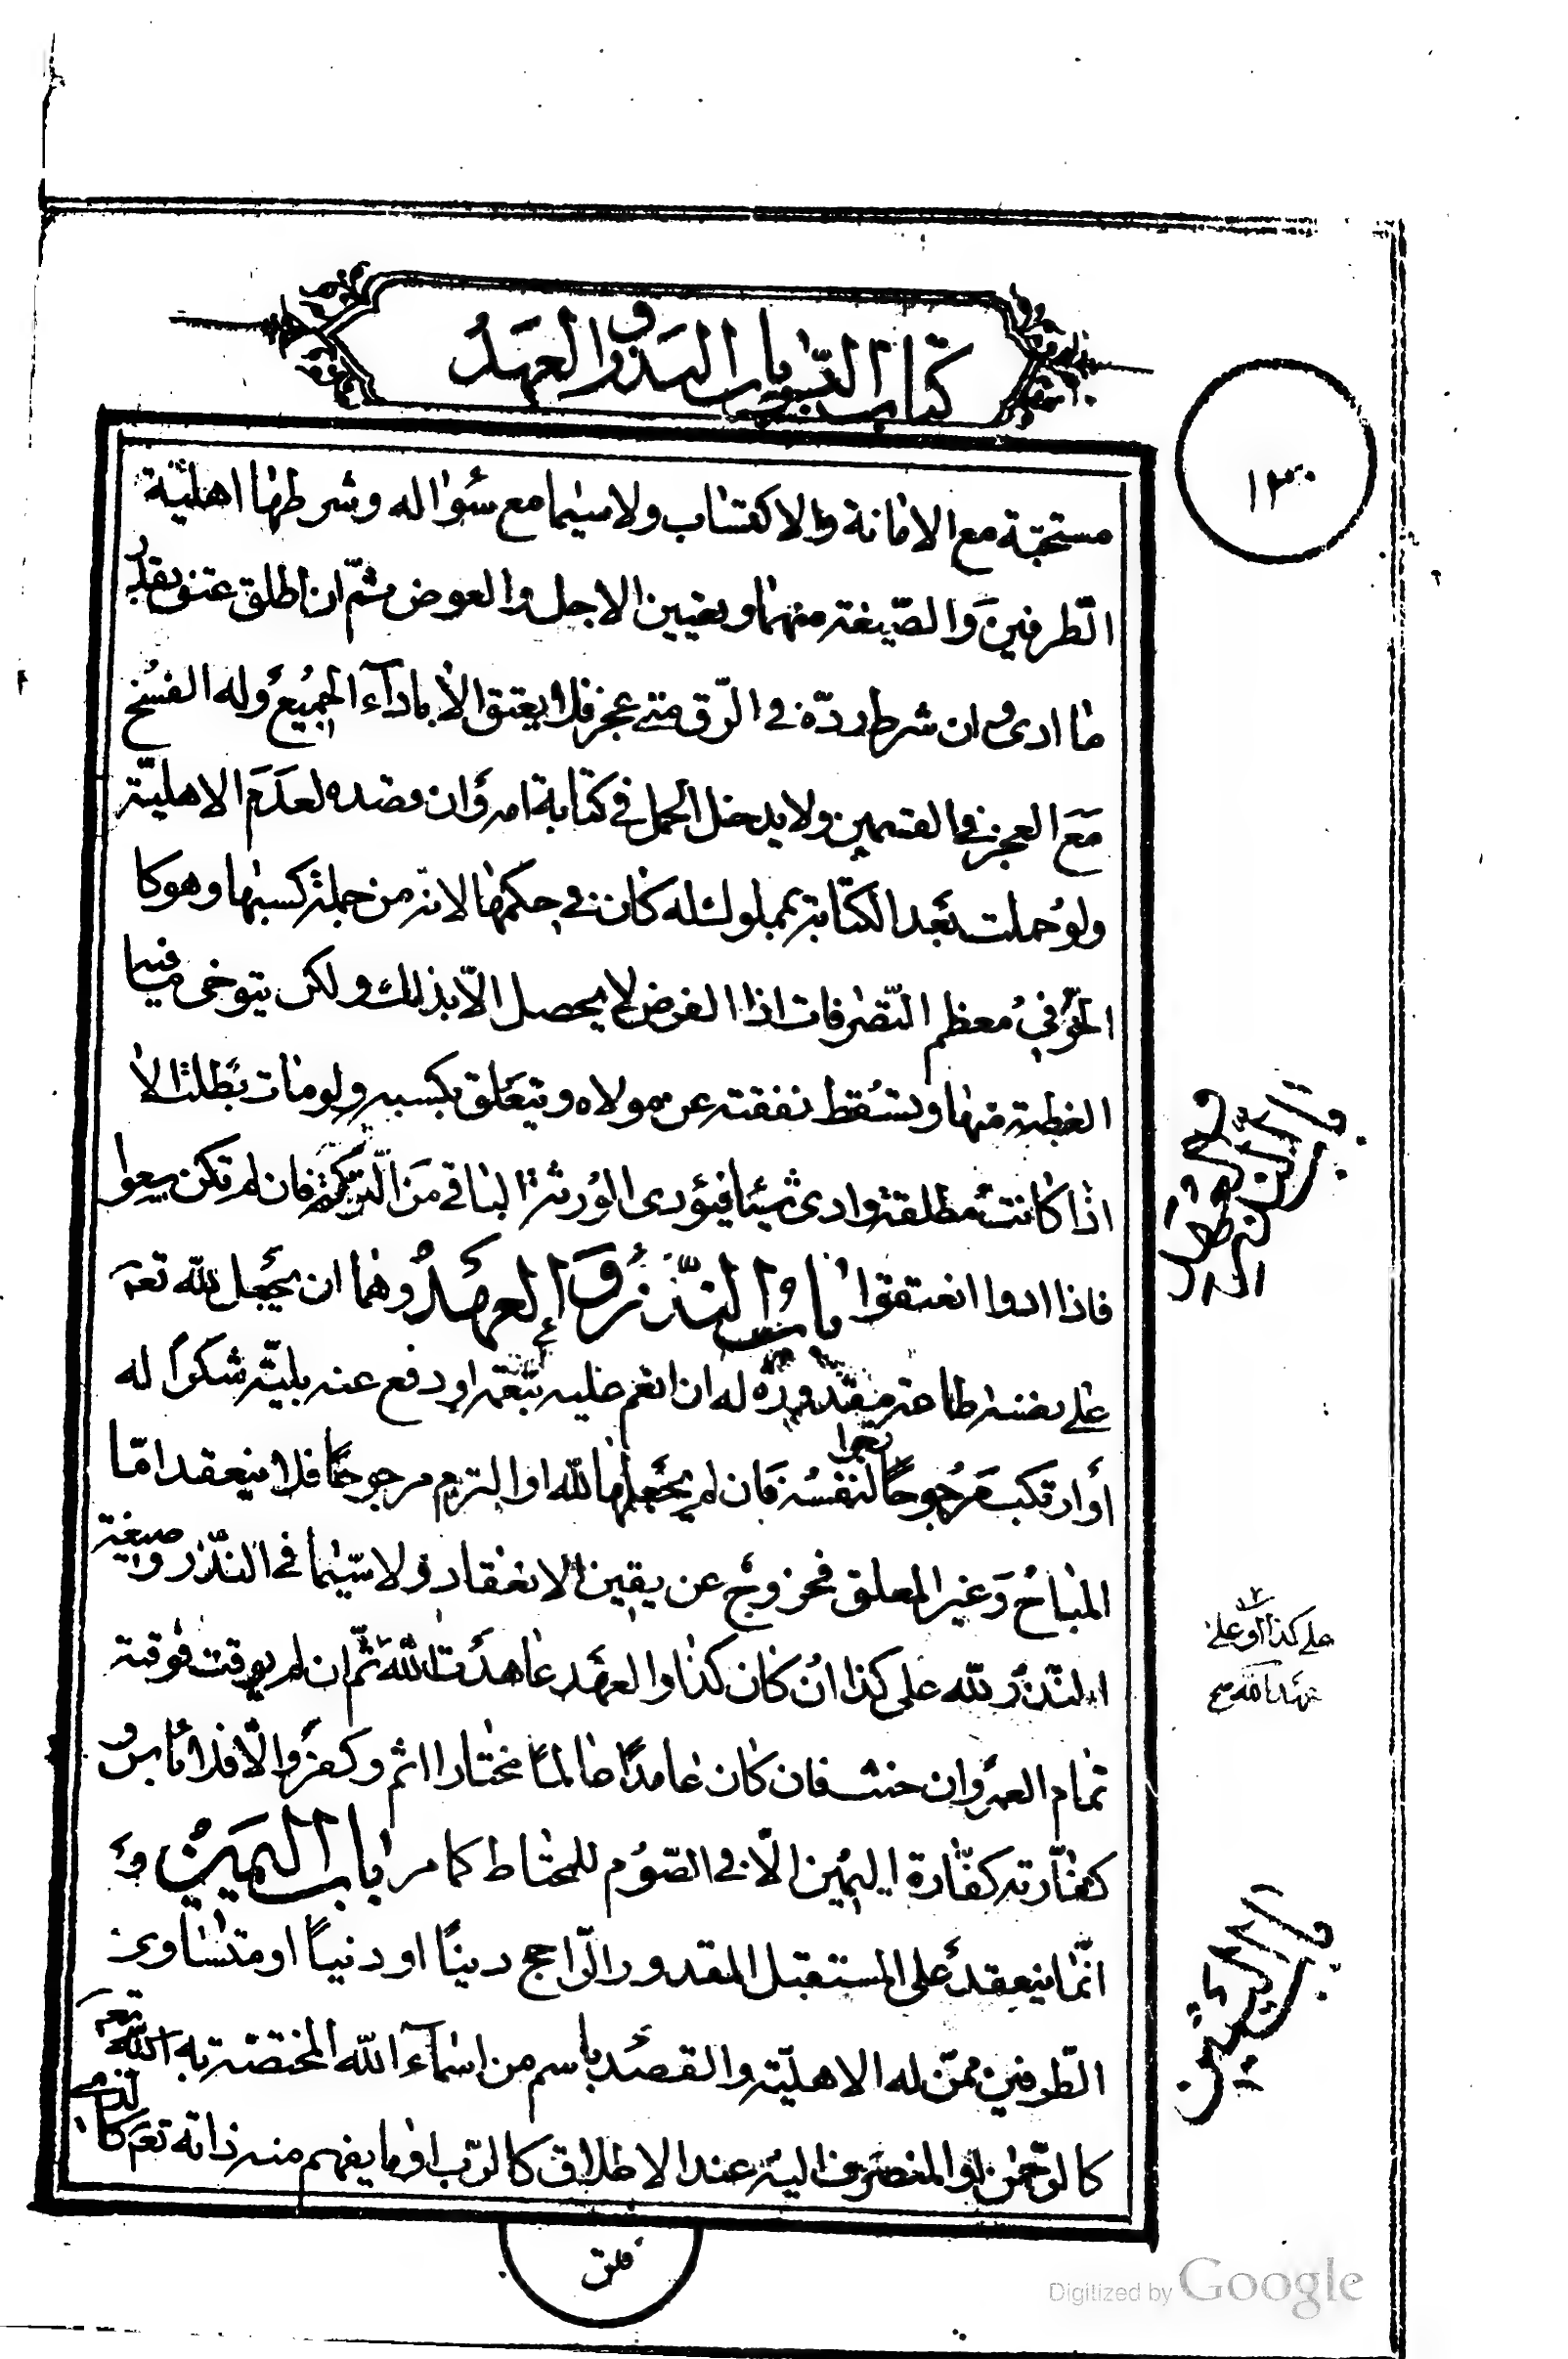 كتاب باب النذر والعهد
١٣٠
مستحبّة مع الامانة والاكتساب ولاسيما مع سؤاله وشرطها اهليّة
الطّرفين والصّيغة منهما وتعيين الاجل والعوض ثمّ ان اطلق عتق بقدر
ما ادى وان شرط ردّه في الرّق متى عجز فلا يعتق الا باداء الجميع وله الفسخ
مع العجز في القسمين ولا يدخل الحمل في كتابة امه وان قصده لعدم الاهليّة
ولو حملت بعد الكتابة بمملوك له كان في حكمها لانه من جملة كسبها وهو كا
الحرّ في معظم التّصرفات اذ الغرض لا يحصل الّا بذلك ولكن يتوخى ما فيه
الغبطة منها وتسقط نفقته عن مولاه ويتعلق بكسبه ولو مات بطلت الا
اذا كانت مطلقة وادى شيئا فيؤدى الورثة الباقي من التركة فان لم تكن سعوا
فاذا ادوا انعتقوا باب النّذر والعهد وهما ان يجعل للّه تعم
على نفسه طاعة مقدورة له ان انعم عليه بنعمة او دفع عنه بليّة شكرا له
أو ارتكب مرجوحا لنفسه فان لم يجعلها للّه او التزم مرجوحا فلا ينعقد امّا
المباح وغير المعلق فخروج عن يقين الانعقاد ولا سيّما في النّذر وصيغة
النّذر للّه على كذا ان كان كذا والعهد عاهدت اللّه ثمّ ان لم يوقت فوقته
تمام العمر وان حنث فان كان عامدا عالما مختارا اثم وكفر والّا فلا بأس و
كفّارته كفّارة اليمين الّا في الصّوم للمحتاط كما مر باب اليمين و
انّما ينعقد على المستقبل المقدور الرّاجح دينًا او دنيًا او متساوى
الطّرفين ممّن له الاهليّة والقصد باسم من اسماء اللّه المختصّة به اللّه تعم
كالرّحمن او المنصرف اليه عند الاطلاق كالرّب او ما يفهم منه ذاته تعم كا لذى
باب النذر والعهد
على كذا او على
عهد اللّه صح
باب اليمين
فلق
Digitized by Google